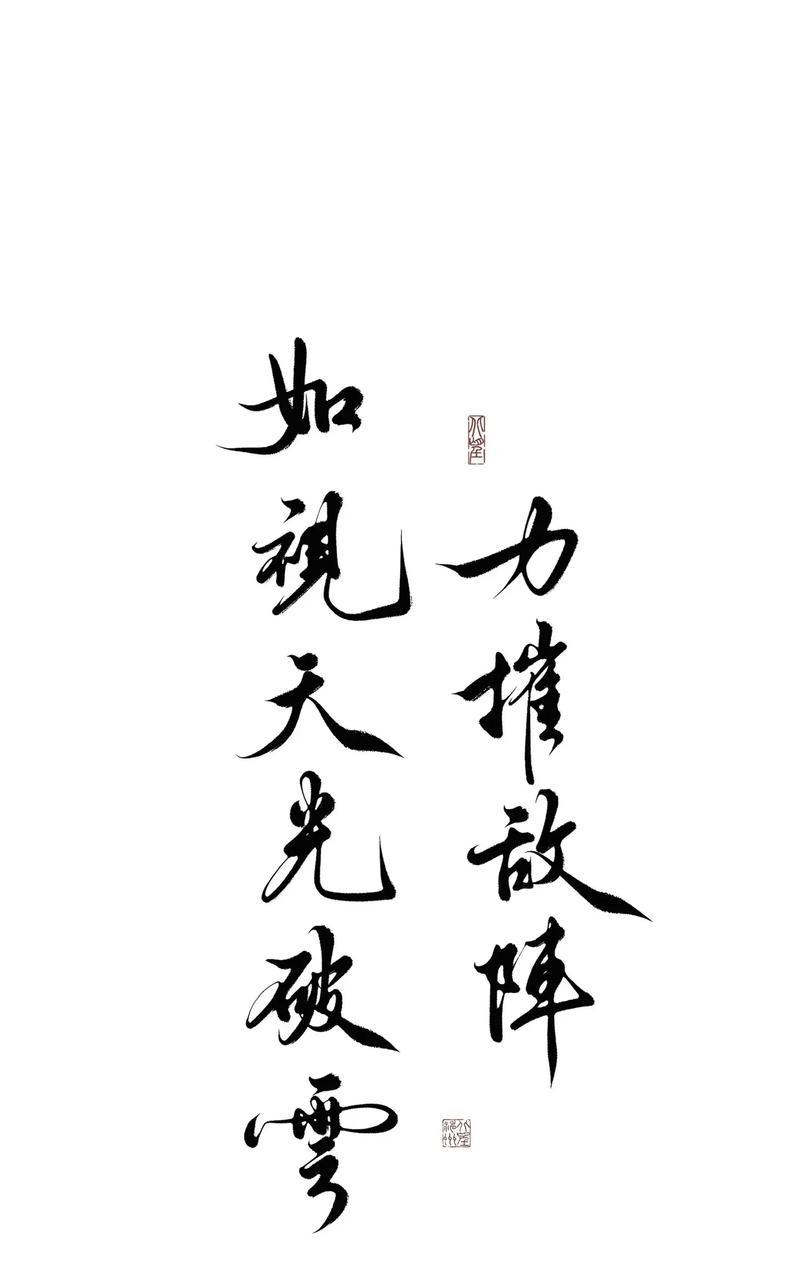 力摧敌陣
如視天光破雲